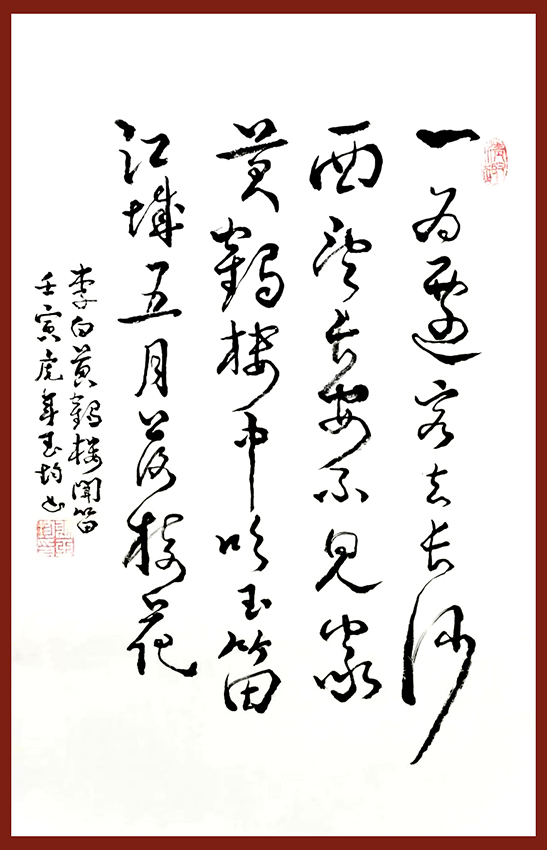 一为迁客去长沙
西望长安不见家
黄鹤楼中吹玉笛
江城五月落梅花
李白黄鹤楼闻笛
壬寅虎年玉均书